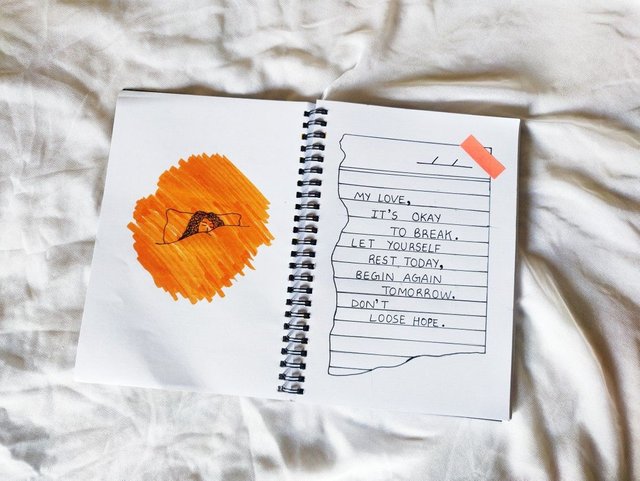 MY LOVE,
IT'S OKAY
TO BREAK.
LET YOURSELF
REST TODAY,
BEGIN AGAIN
TOMORROW.
DON'T
LOOSE HOPE.